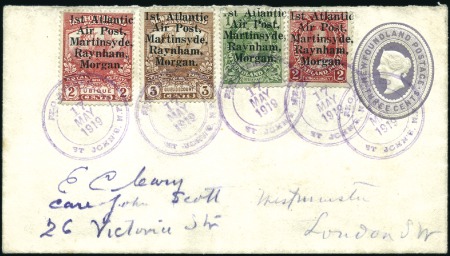 1st Atlantic
Air Post,
Martinsyde,
Raynham,
Morgan.
UBIQUE
2 CENTS 2
1st Atlantic
Air Post,
Martinsyde,
Raynham,
Morgan.
3 CENTS 3
1st Atlantic
Air Post,
Martinsyde,
Raynham,
Morgan.
1st Atlantic
Air Post,
Martinsyde,
Raynham,
Morgan.
2
NEWFOUNDLAND POSTAGE
THREE CENTS
MAY
1919
ST. JOHN'S
MAY
1919
ST. JOHN'S
MAY
1919
ST. JOHN'S
MAY
1919
ST. JOHN'S
MAY
1919
ST. JOHN'S
E C Cleary
care John Scott
26 Victoria Str
Westminster
London SW